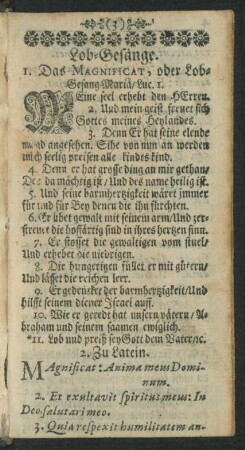 (3)
Lob-Gesänge.
1. Das MAGNIFICAT, oder Lob-
Gesang Mariä/ Luc. 1.
MEine seel erhebt den HErren.
2. Und mein geist freuet sich
Gottes meines Heylandes.
3. Denn Er hat seine elende
magd angesehen. Sihe von nun an werden
mich seelig preisen alle kindes kind.
4. Denn er hat grosse ding an mir gethan/
Der da mächtig ist/ Und des name heilig ist.
5. Und seine barmhertzigkeit wäret immer
für und für Bey denen die ihn fürchten.
6. Er übet gewalt mit seinem arm/ Und zer-
streuet die hoffärtig sind in ihres hertzen sinn.
7. Er stosset die gewaltigen vom stuel/
Und erhebet die niedrigen.
8. Die hungerigen füllet er mit gütern/
Und lässet die reichen leer.
9. Er gedencket der barmhertzigkeit/ Und
hilfft seinem diener Israel auff.
10. Wie er geredt hat unsern vätern/ A-
braham und seinem saamen ewiglich.
*11. Lob und preiß sey Gott dem Vater/ ꝛc.
2. Zu Latein.
MAgnificat: Anima mea Domi-
num.
2. Et exultavit spiritus meus: In
Deo salutari meo.
3. Quia respexit humilitatem an-